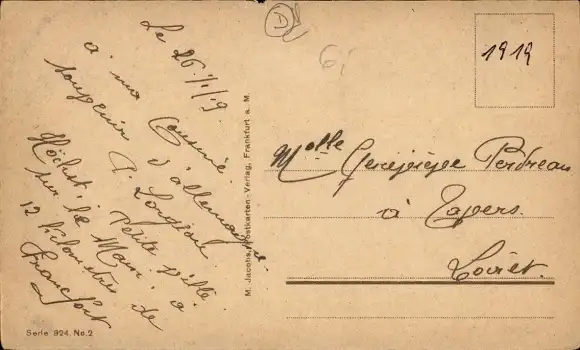 Le 26/1/19
à ma Cousine
souvenir d'allemagne
Petite ville
Höchst sur le Main à
12 kilomètres de
Francfort
M. Jacobs, Postkarten-Verlag, Frankfurt a. M.
Serie 924, No. 2
6,
1919
Melle Geneviève Perdreau
à Tavers
Loiret